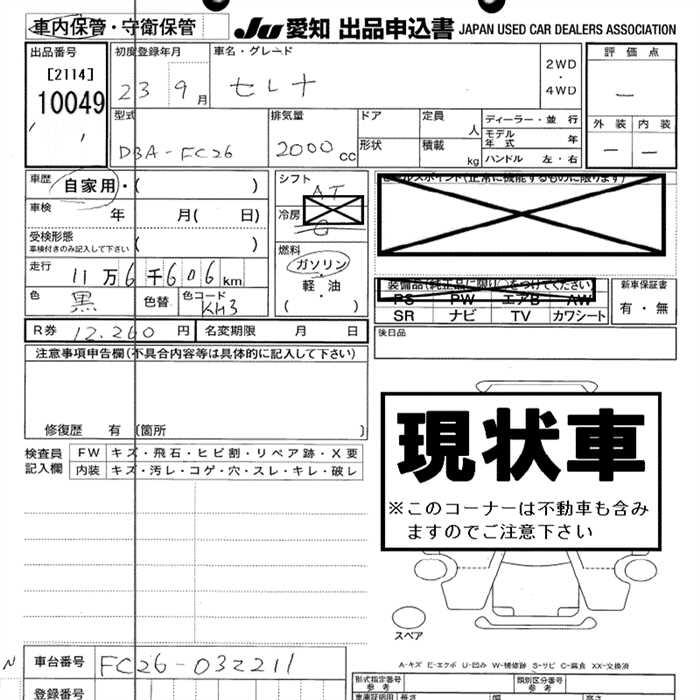 車内保管・守衛保管
JU 愛知 出品申込書 JAPAN USED CAR DEALERS ASSOCIATION
出品番号
[2114]
10049
初度登録年月
23 9月
車名・グレード
セレナ
2WD
・
4WD
評価点
―
外装 内装
― ―
型式
DBA-FC26
排気量
2000cc
ドア
形状
定員 人
積載 kg
ディーラー・並行
モデル年式 年
ハンドル 左・右
車歴 自家用・( )
車検 年 月( 日)
受検形態
車検付きのみ記入して下さい ( )
走行 11万6千606km
色 黒 色替 色コード KH3
シフト AT
冷房
燃料
ガソリン
・
軽油
・
( )
セールスポイント(正常に機能するものに限ります)
装備品(純正品に限り○をつけてください)
PS PW エアB AW
SR ナビ TV カワシート
新車保証書
有・無
R券 12,260円 名変期限 月 日
後日品
注意事項申告欄(不具合内容等は具体的に記入して下さい)
修復歴 有 (箇所 )
検査員記入欄
FW キズ・飛石・ヒビ割・リペア跡・X要
内装 キズ・汚レ・コゲ・穴・スレ・キレ・破レ
現状車
※このコーナーは不動車も含み
ますのでご注意下さい
スペア
A-キズ E-エクボ U-凹み W-補修跡 S-サビ C-腐食 XX-交換済
車台番号 FC26-032211
登録番号
形式指定番号
参考
類別区分番号
参考